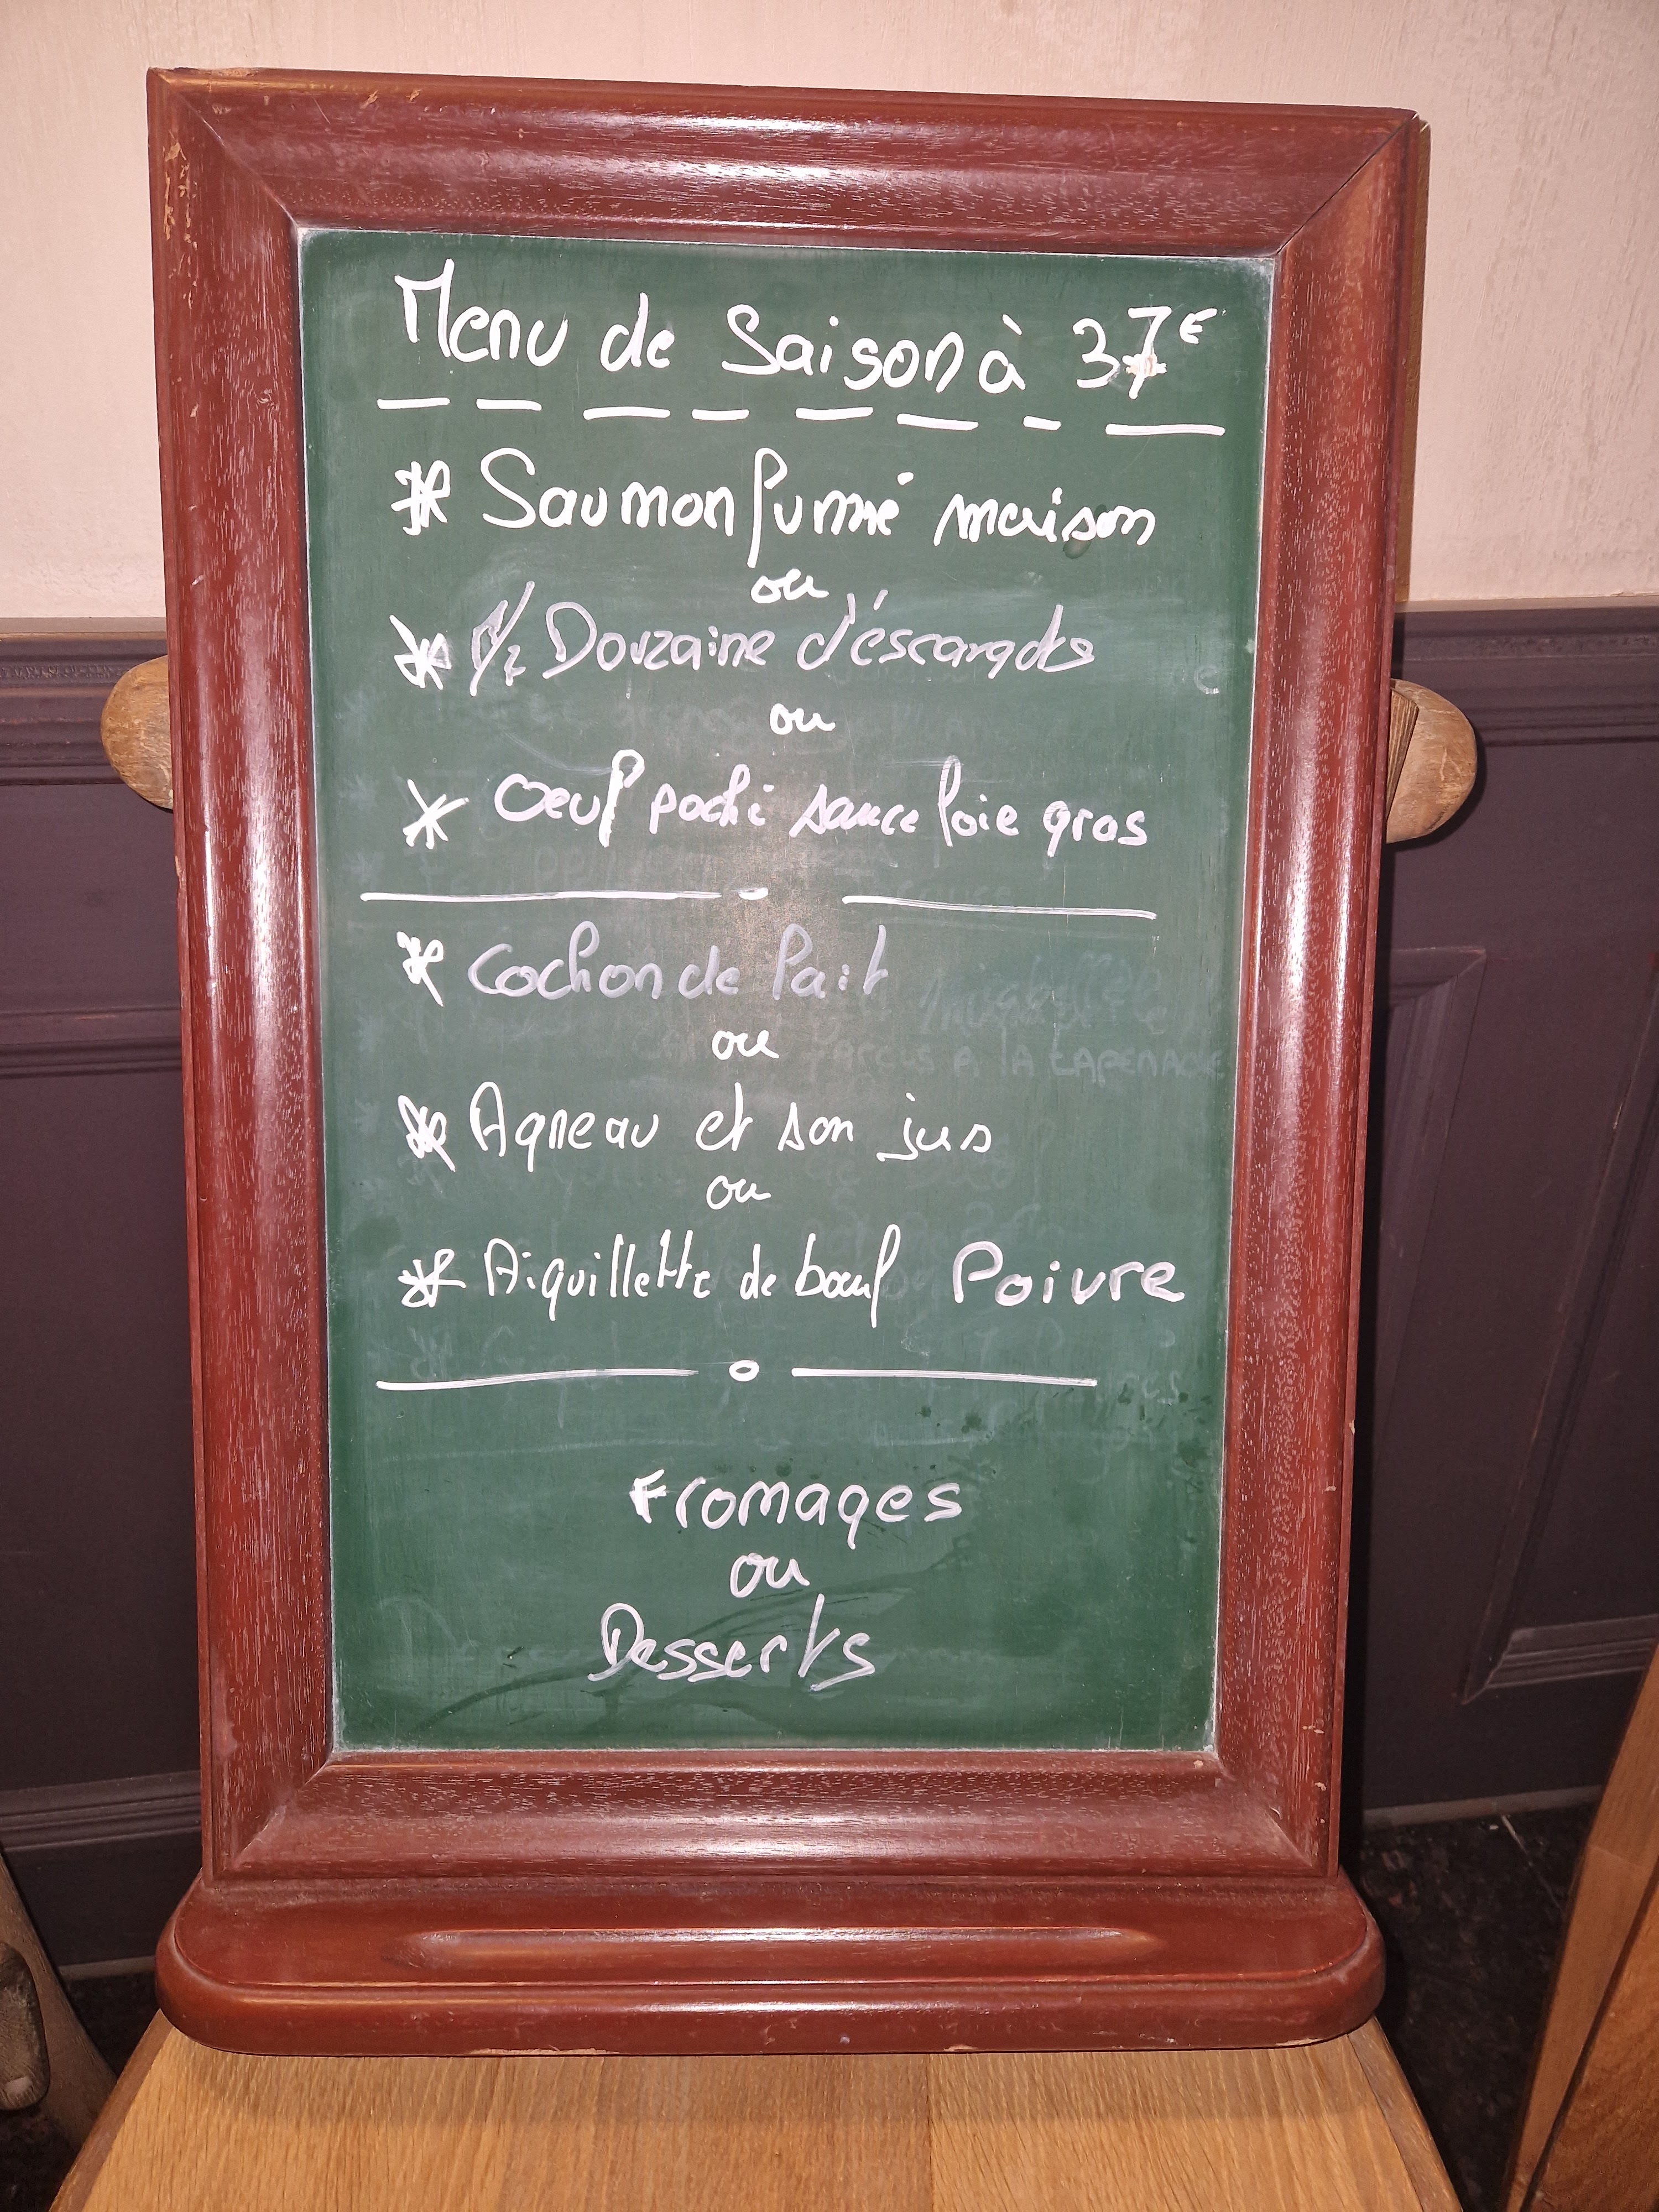 Menu de Saison à 37€
* Saumon fumé maison
ou
* 1/2 Douzaine d'éscargots
ou
* Oeuf poché sauce foie gras
* Cochon de lait
ou
* Agneau et son jus
ou
* Aiguillette de boeuf Poivre
Fromages
ou
Desserts